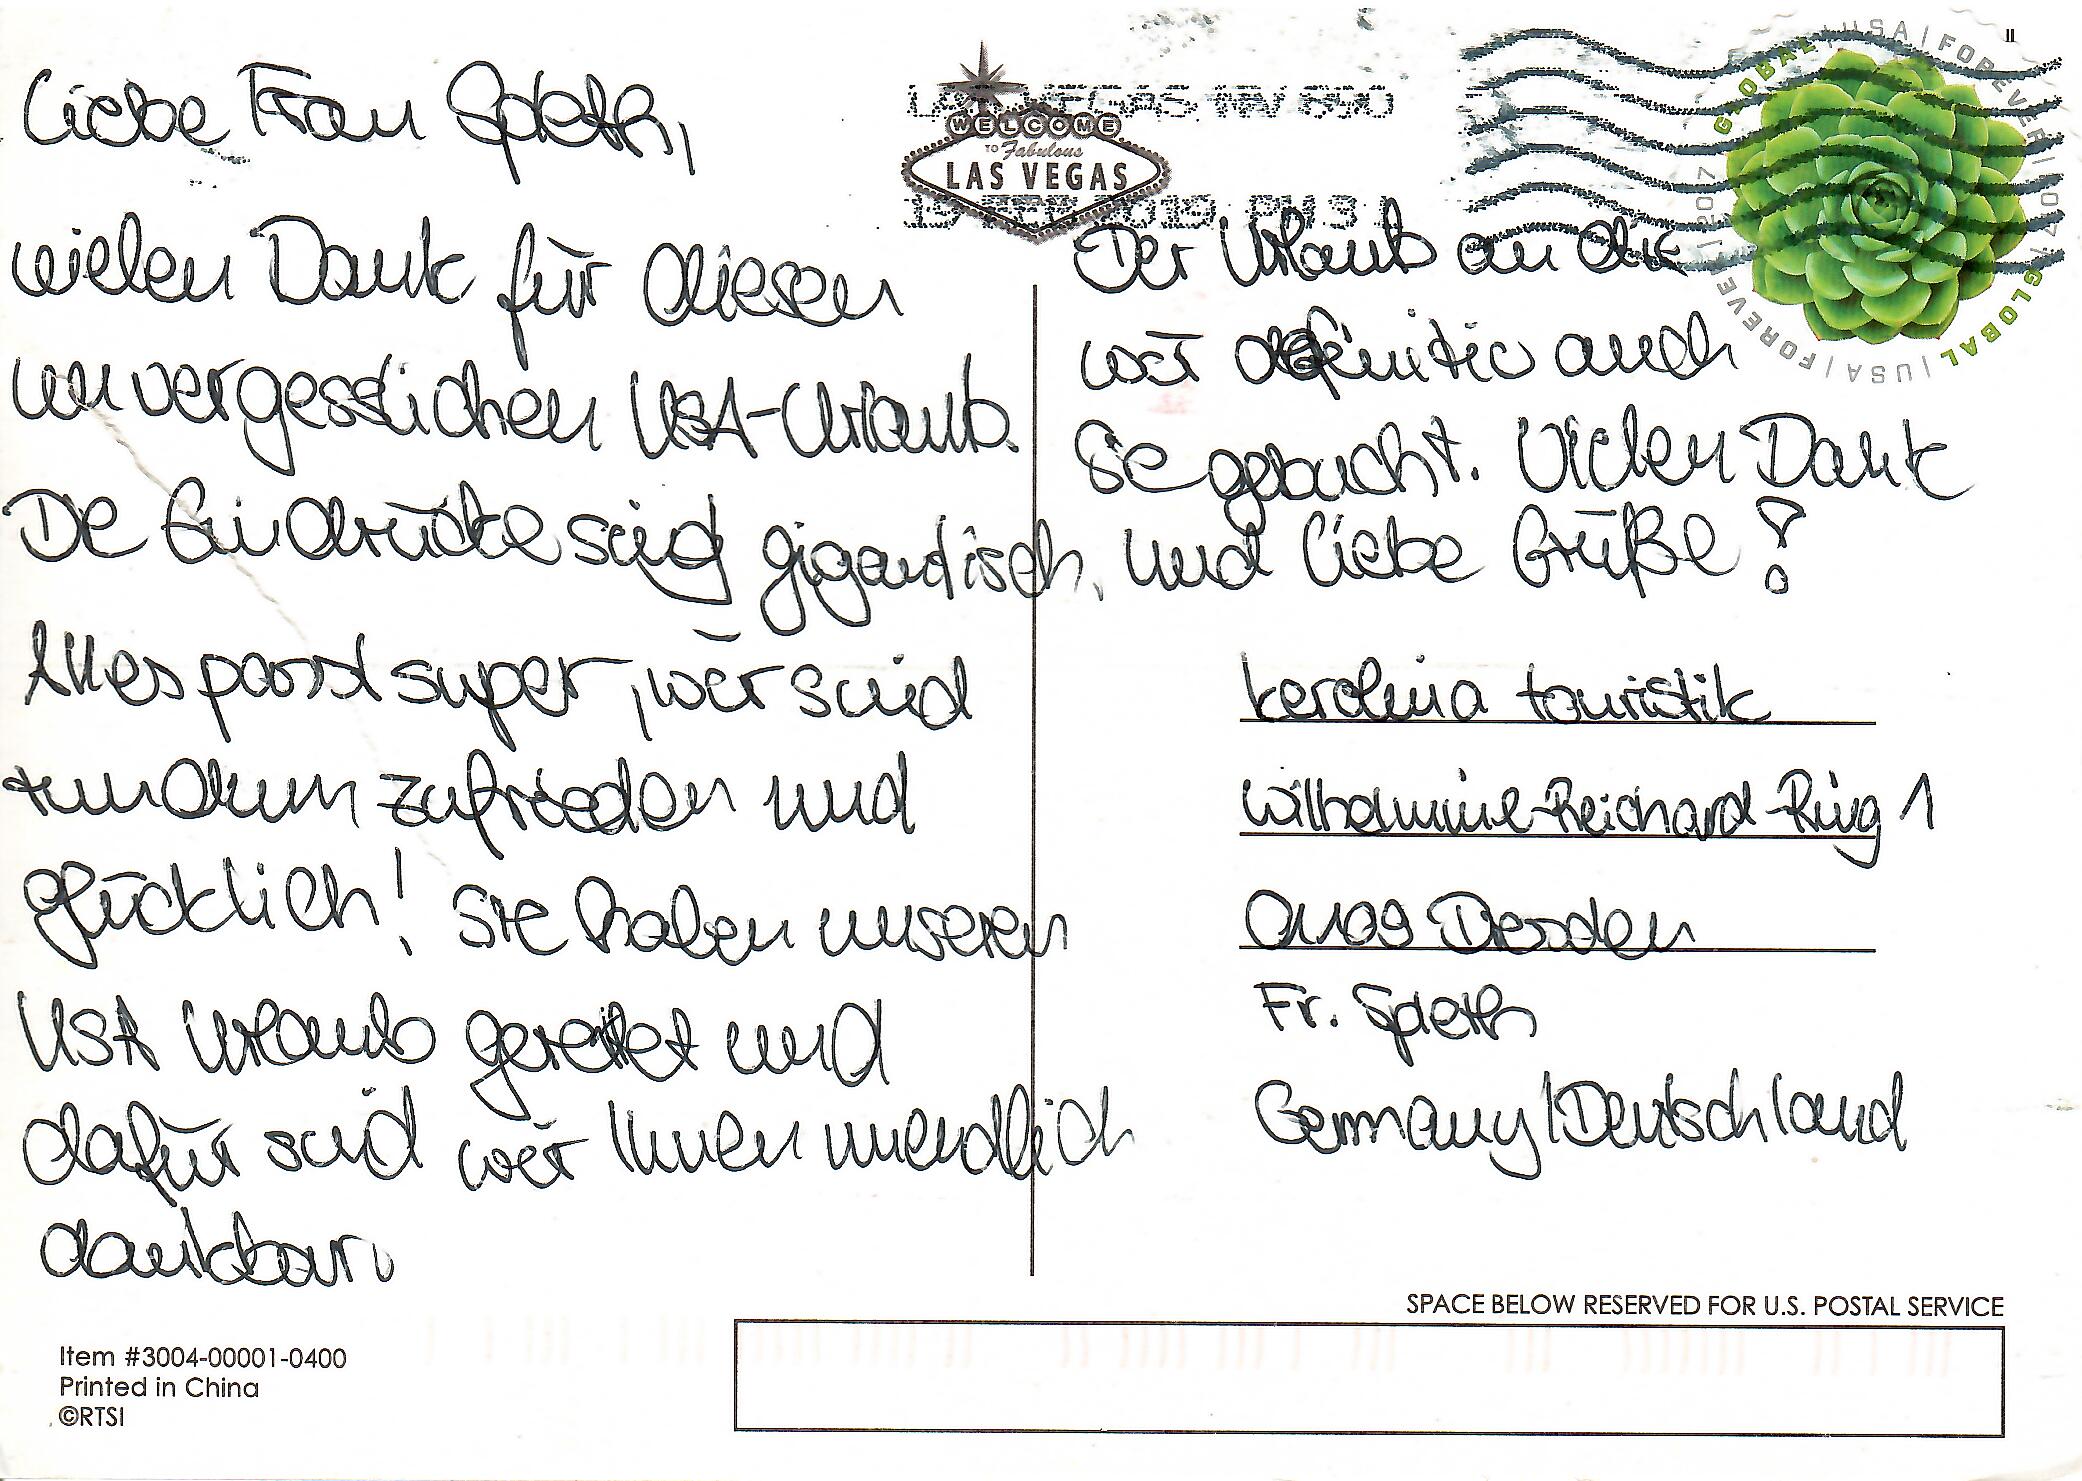 Liebe Frau Spleth,
vielen Dank für diesen
unvergesslichen USA-Urlaub.
Die Eindrücke sind gigantisch.
Alles passt super, wir sind
rundum zufrieden und
glücklich! Sie haben unseren
USA Urlaub gerettet und
dafür sind wir Ihnen unendlich
dankbar.
WELCOME
TO Fabulous
LAS VEGAS
LAS VEGAS NV 890
19 2019 PM 3 L
GLOBAL | USA | FOREVER | 2017 | GLOBAL | USA | FOREVER | 2017
Der Urlaub an die
wir definitiv auch
Sie gebucht. Vielen Dank
und liebe Grüße!
touristik
Wilhelmine-Reichard-Ring 1
01109 Dresden
Fr. Spleth
Germany/Deutschland
SPACE BELOW RESERVED FOR U.S. POSTAL SERVICE
Item #3004-00001-0400
Printed in China
©RTSI